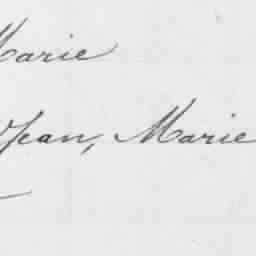 Marie
Jean, Marie